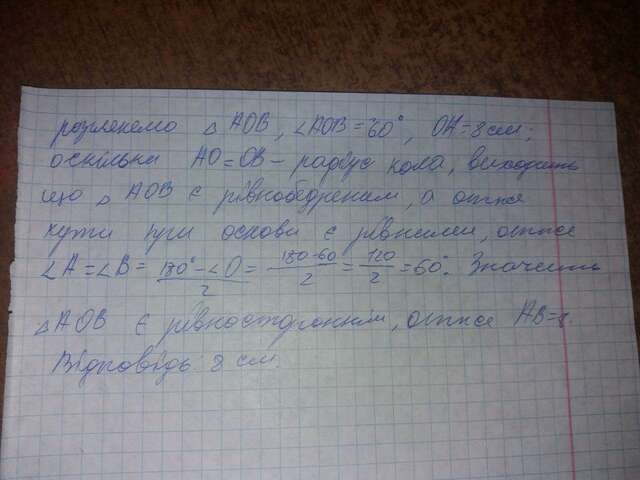 розглянемо △ AOB, ∠AOB = 60°, OA = 8 см;
оскільки AO = OB - радіус кола, виходить
що △ AOB є рівнобедреним, а отже
кути при основі є рівними, отже
∠A = ∠B = (180° - ∠O)/2 = (180 - 60)/2 = 120/2 = 60°. Значить
△ AOB є рівностороннім, отже AB = 8.
Відповідь 8 см.